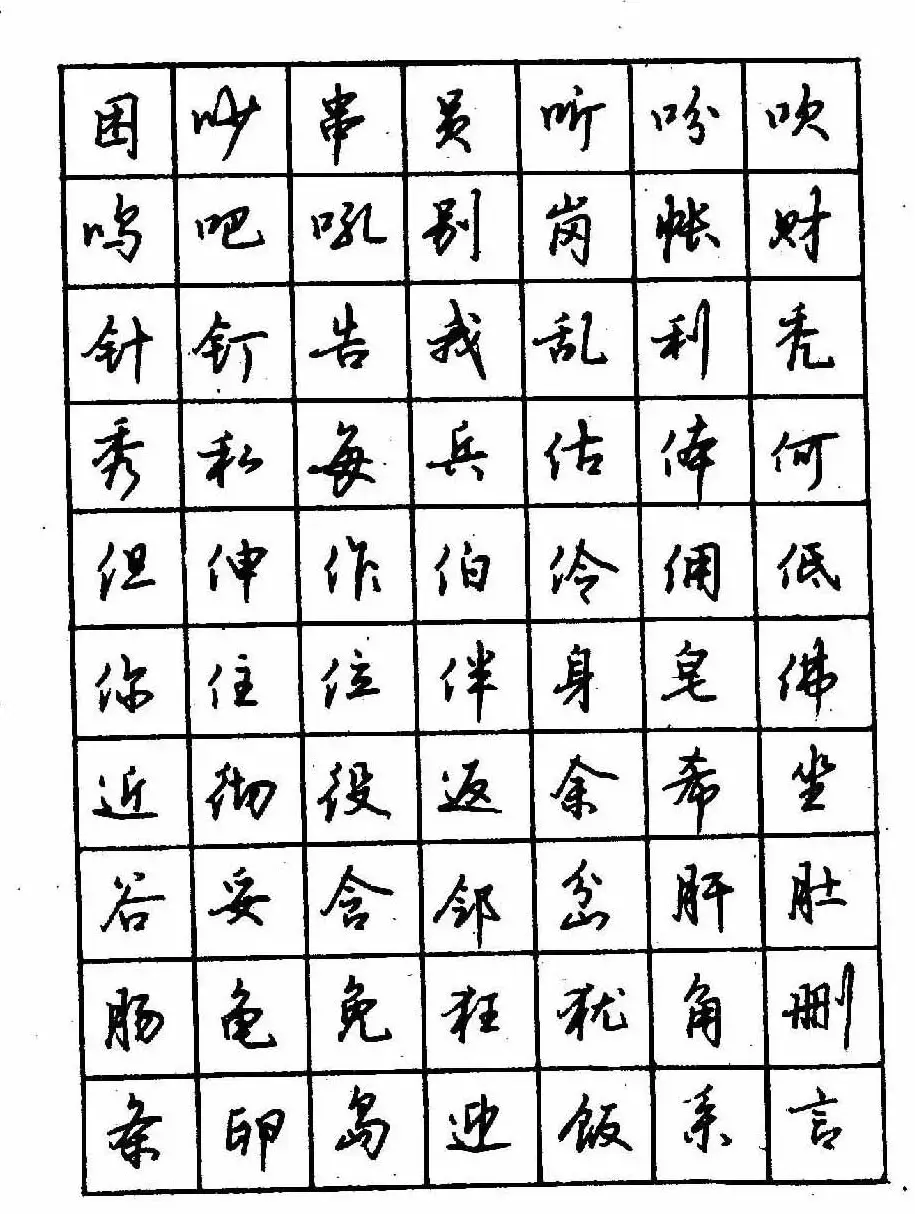 困吵串员听吩吹
呜吧吼别岗帐财
针钉告我乱利秃
秀私每兵估体何
但伸作伯伶佣低
你住位伴身皂佛
近彻役返余希坐
谷妥含邻岔肝肚
肠龟免狂犹角删
条卵岛迎饭系言